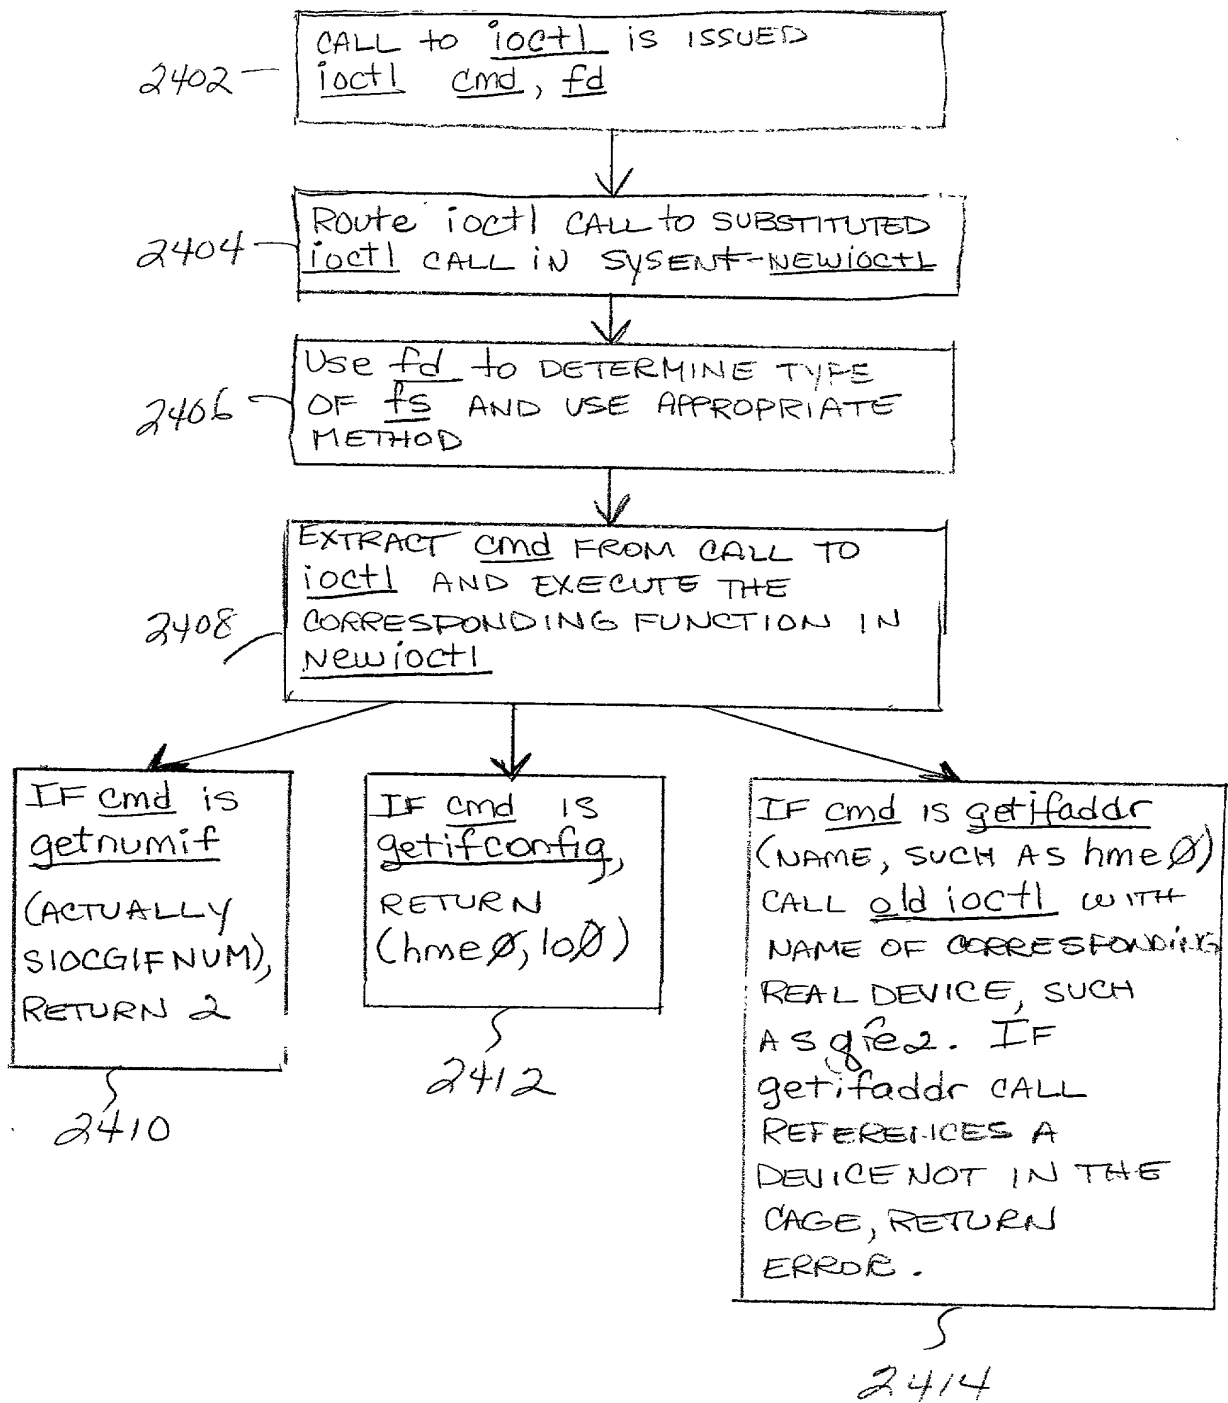 CALL to ioctl is ISSUED
ioctl cmd, fd
2402
Route ioctl CALL to SUBSTITUTED
ioctl CALL iN SYSENT-NEWioctL
2404
Use fd to DETERMINE TYPE
OF fs AND USE APPROPRIATE
METHOD
2406
EXTRACT cmd FROM CALL TO
ioctl AND EXECUTE THE
CORRESPONDING FUNCTION IN
Newioctl
2408
IF cmd is
getnumif
(ACTUALLY
SIOCGIFNUM),
RETURN 2
2410
IF cmd IS
getifconfig,
RETURN
(hmeØ, loØ)
2412
IF cmd IS getifaddr
(NAME, SUCH AS hmeØ)
CALL old ioctl WITH
NAME OF CORRESPONDING
REAL DEVICE, SUCH
AS qfe2. IF
getifaddr CALL
REFERENCES A
DEVICE NOT IN THE
CAGE, RETURN
ERROR.
2414